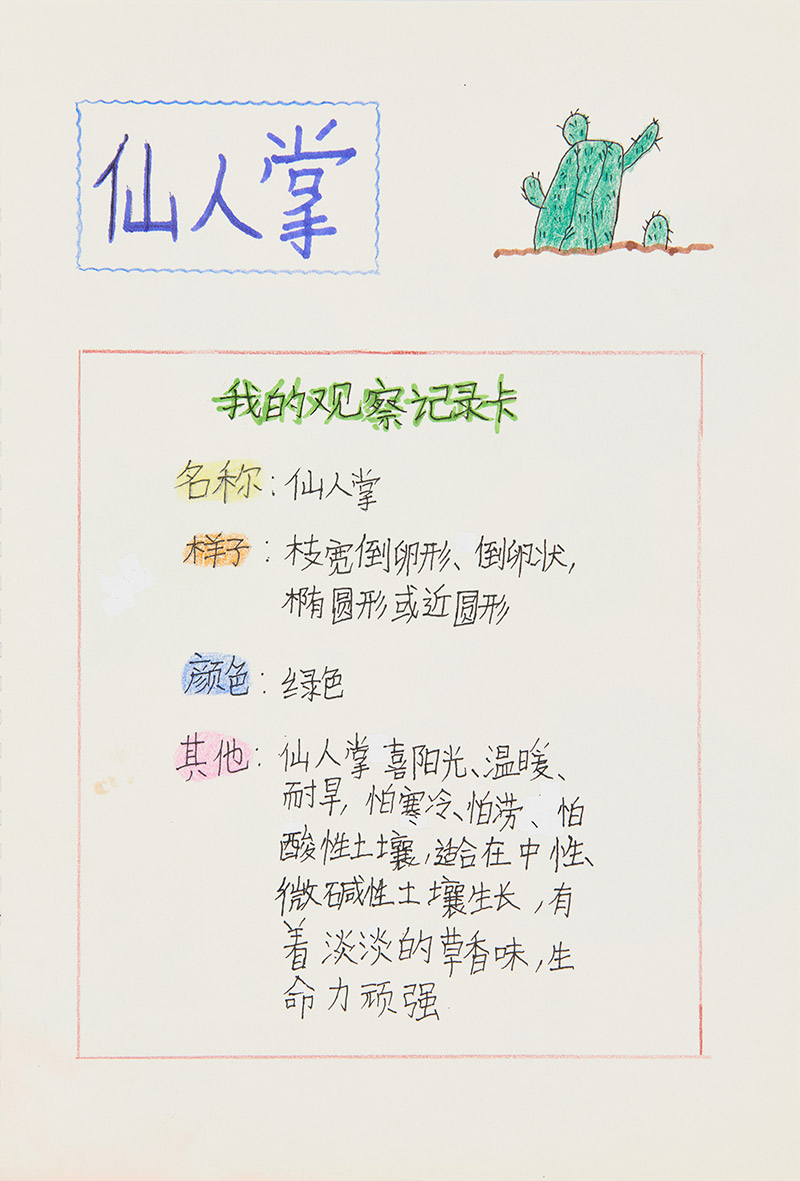 仙人掌
我的观察记录卡
名称：仙人掌
样子：枝宽倒卵形、倒卵状，
椭圆形或近圆形
颜色：绿色
其他：仙人掌喜阳光、温暖、
耐旱，怕寒冷、怕涝、怕
酸性土壤，适合在中性、
微碱性土壤生长，有
着淡淡的草香味，生
命力顽强